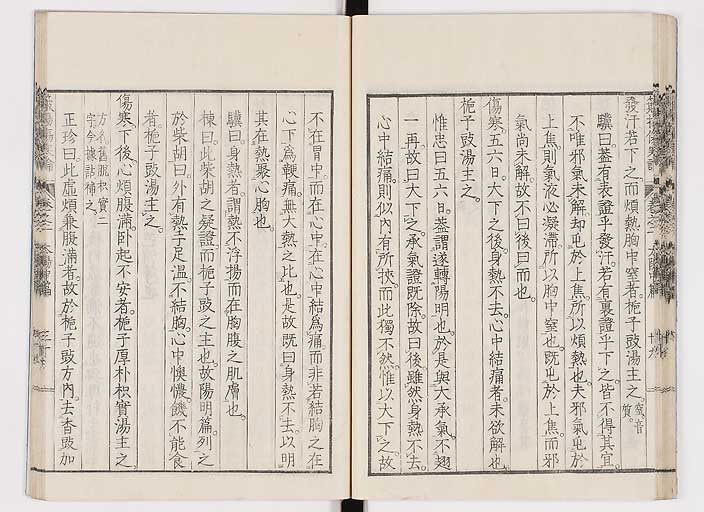 發汗若下之而煩熱胸中窒者梔子豉湯主之 窒音質
驥曰蓋有表證乎發汗若有裏證乎下之皆不得其宜
不唯邪氣未解却屯於上焦所以煩熱也夫邪氣屯於
上焦則氣液必凝滯所以胸中窒也既屯於上焦而邪
氣尚未解故不曰後曰而也
傷寒五六日大下之後身熱不去心中結痛者未欲解也
梔子豉湯主之
惟忠曰五六日蓋謂遂轉陽明也於是與大承氣不翅
一再故曰大下之承氣證既除故曰後雖然身熱不去
心中結痛則似內有所挾而此獨不然惟以大下之故
不在胃中而在心中在心中結為痛而非若結胸之在
心下為鞕痛無大熱之比也是故既曰身熱不去以明
其在熱聚心胸也
驥曰身熱者謂熱不浮揚而在胸腹之肌膚也
棟曰此柴胡之疑證而梔子豉之主也故陽明篇列之
於柴胡曰外有熱手足溫不結胸心中懊憹饑不能食
者梔子豉湯主之
傷寒下後心煩腹滿臥起不安者梔子厚朴枳實湯主之
方名舊脫枳實二字今據詁補之
正珍曰此虛煩兼腹滿者故於梔子豉方內去香豉加